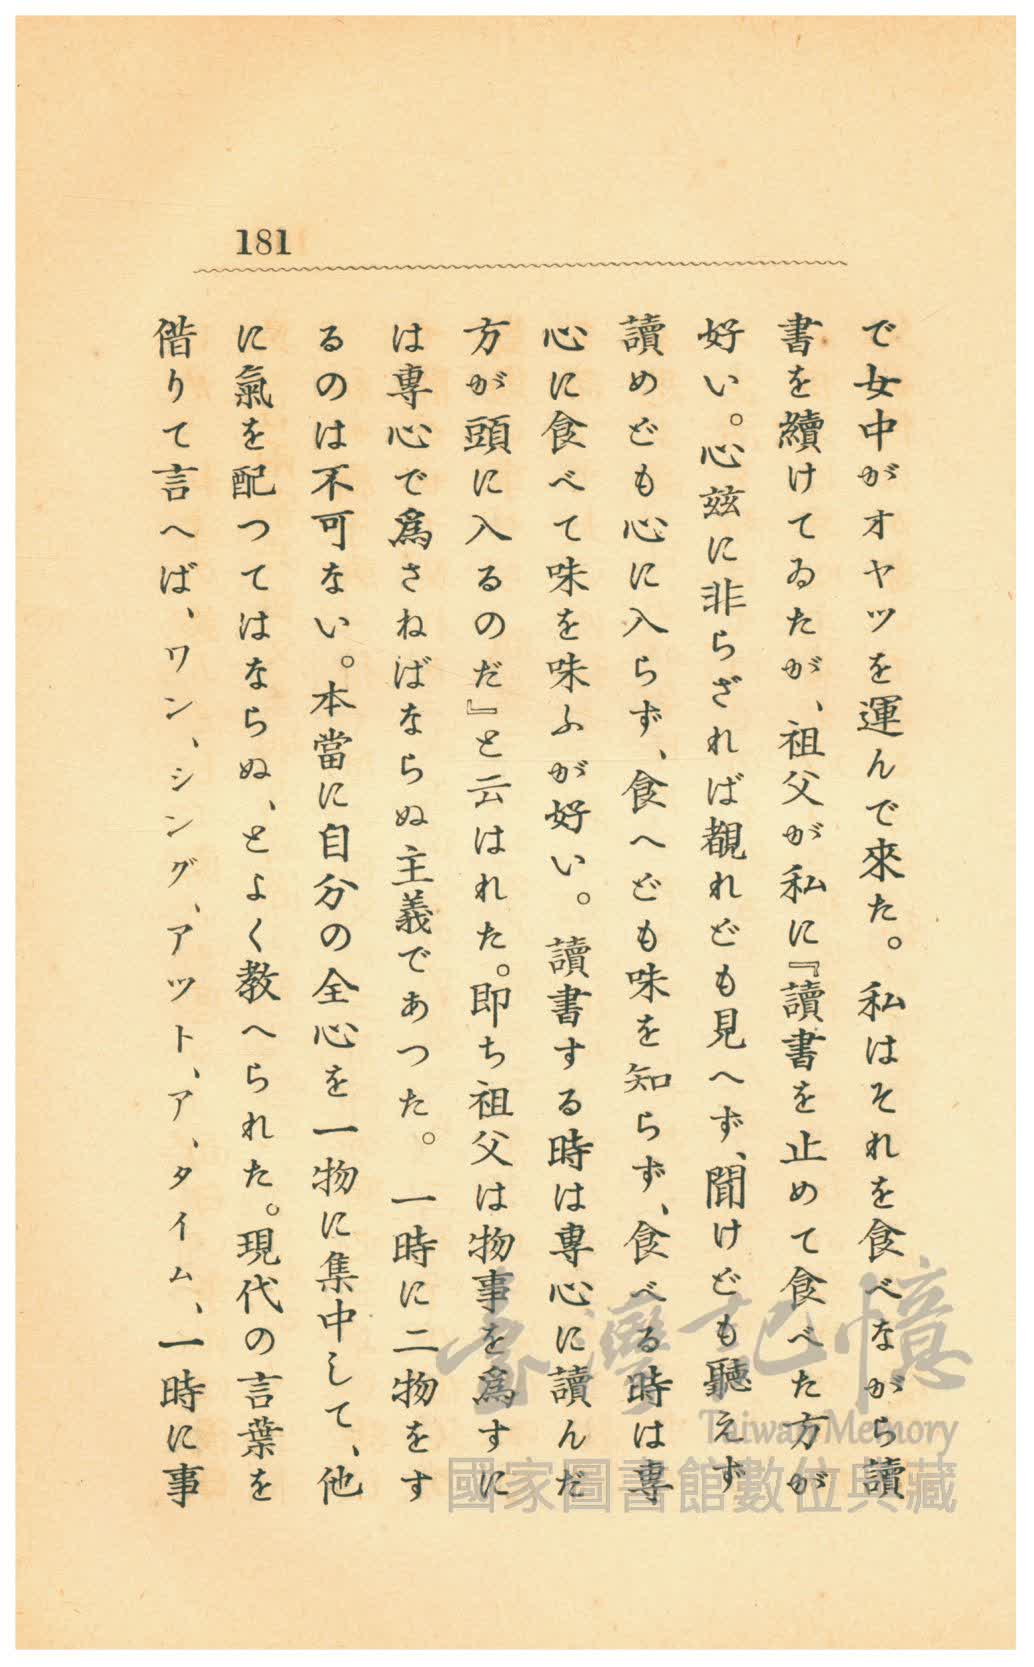 181
で女中がオヤツを運んで來た。私はそれを食べながら讀
書を續けてゐたが、祖父が私に『讀書を止めて食べた方が
好い。心玆に非らざれば覩れども見へず、聞けども聽えず
讀めども心に入らず、食へども味を知らず、食べる時は專
心に食べて味を味ふが好い。讀書する時は專心に讀んだ
方が頭に入るのだ』と云はれた。即ち祖父は物事を爲すに
は專心で爲さねばならぬ主義であつた。一時に二物をす
るのは不可ない。本當に自分の全心を一物に集中して、他
に氣を配つてはならぬ、とよく敎へられた。現代の言葉を
偕りて言へば、ワン、シング、アツト、ア、タイム、一時に事
臺灣記憶
Taiwan Memory
國家圖書館數位典藏